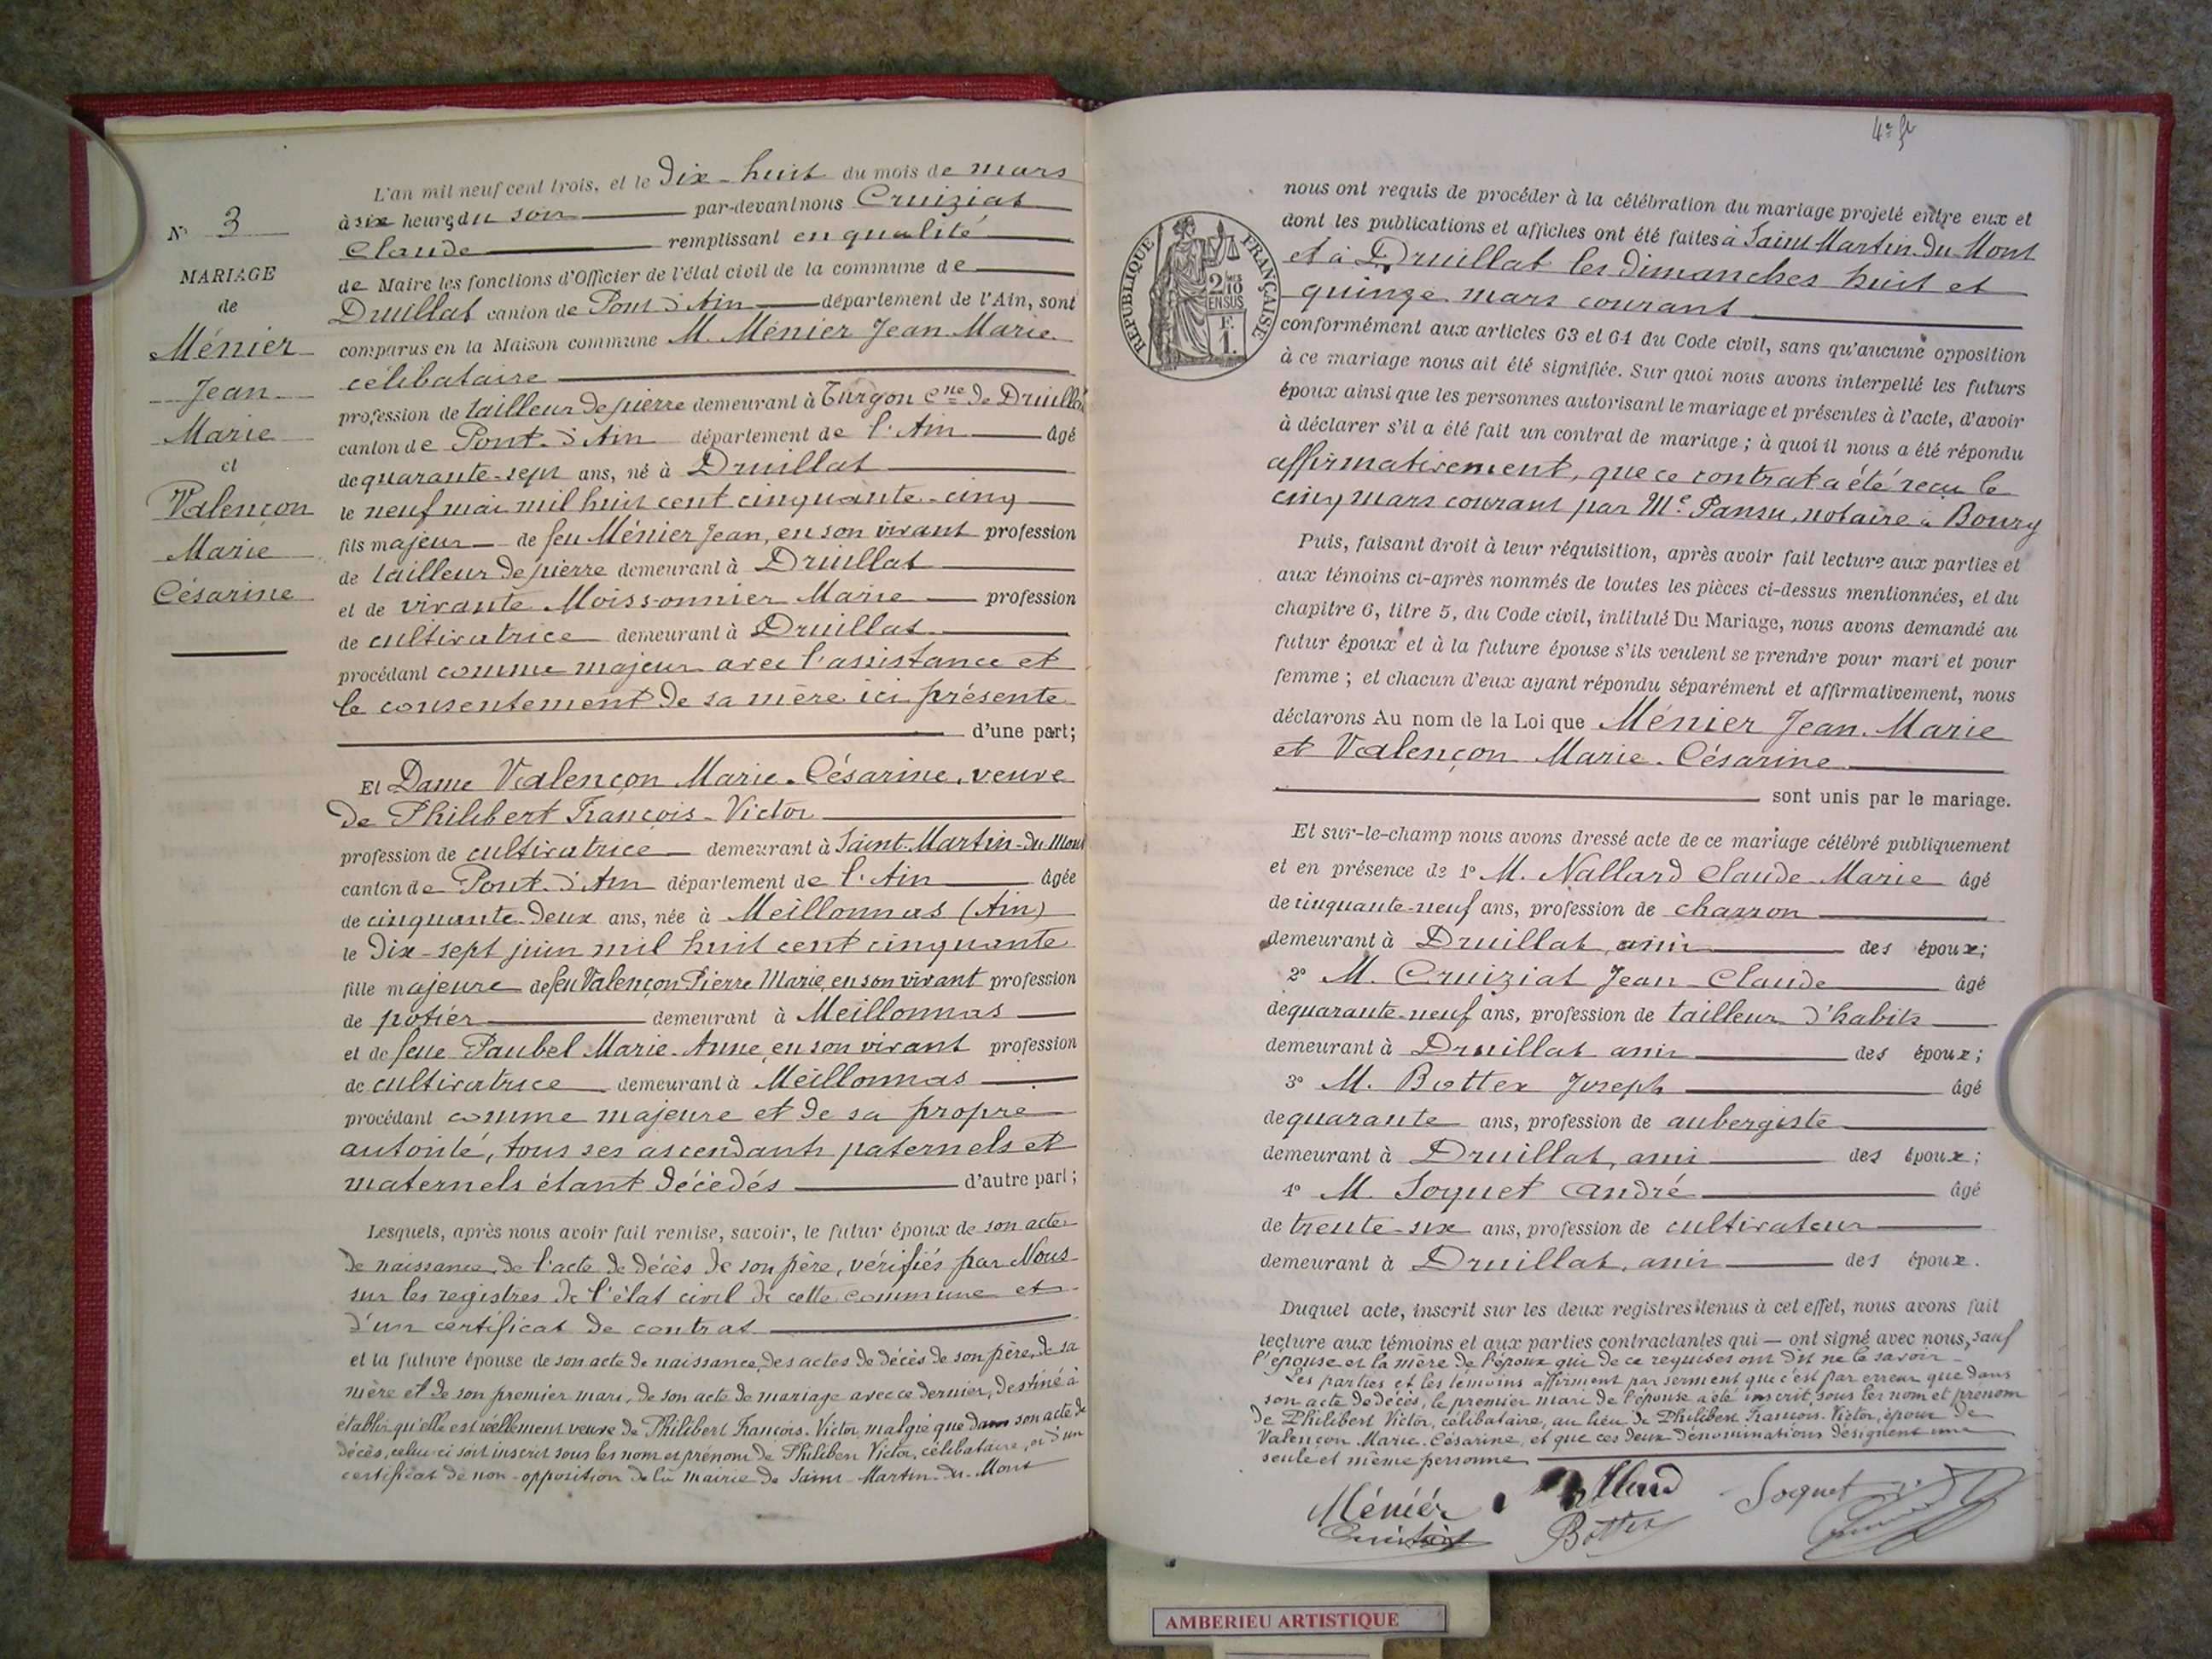 N° 3
MARIAGE
de
Ménier
Jean
Marie
et
Valençon
Marie
Césarine
L'an mil neuf cent trois, et le dix-huit du mois de mars
à six heures du soir par-devant nous Cruiziat
Claude remplissant en qualité
de Maire les fonctions d'Officier de l'état civil de la commune de
Druillat canton de Pont d'Ain département de l'Ain, sont
comparus en la Maison commune M. Ménier Jean Marie
célibataire
profession de tailleur de pierre demeurant à Turgon cne de Druillat
canton de Pont-d'Ain département de l'Ain âgé
de quarante-sept ans, né à Druillat
le neuf mai mil huit cent cinquante-cinq
fils majeur de feu Ménier Jean, en son vivant profession
de tailleur de pierre demeurant à Druillat
et de vivante Moissonnier Marie profession
de cultivatrice demeurant à Druillat
procédant comme majeur avec l'assistance et
le consentement de sa mère ici présente
d'une part;
Et Dame Valençon Marie-Césarine, veuve
de Philibert François-Victor
profession de cultivatrice demeurant à Saint-Martin-du-Mont
canton de Pont-d'Ain département de l'Ain âgée
de cinquante-deux ans, née à Meillonnas (Ain)
le dix-sept juin mil huit cent cinquante
fille majeure de feu Valençon Pierre Marie, en son vivant profession
de potier demeurant à Meillonnas
et de feue Paubel Marie-Anne, en son vivant profession
de cultivatrice demeurant à Meillonnas
procédant comme majeure et de sa propre
autorité, tous ses ascendants paternels et
maternels étant décédés d'autre part;
Lesquels, après nous avoir fait remise, savoir, le futur époux de son acte
de naissance, de l'acte de décès de son père, vérifiés par Nous
sur les registres de l'état civil de cette commune et
d'un certificat de contrat
et la future épouse de son acte de naissance, des actes de décès de son père, de sa
mère et de son premier mari, de son acte de mariage avec ce dernier, destiné à
établir qu'elle est réellement veuve de Philibert François-Victor, malgré que dans son acte de
décès, celui-ci soit inscrit sous les nom et prénom de Philibert Victor, célibataire, et d'un
certificat de non-opposition de la mairie de Saint-Martin-du-Mont
RÉPUBLIQUE FRANÇAISE
2/10 EN SUS
F.
1.
nous ont requis de procéder à la célébration du mariage projeté entre eux et
dont les publications et affiches ont été faites à Saint Martin-du-Mont
et à Druillat les dimanches huit et
quinze mars courant
conformément aux articles 63 et 64 du Code civil, sans qu'aucune opposition
à ce mariage nous ait été signifiée. Sur quoi nous avons interpellé les futurs
époux ainsi que les personnes autorisant le mariage et présentes à l'acte, d'avoir
à déclarer s'il a été fait un contrat de mariage ; à quoi il nous a été répondu
affirmativement, que ce contrat a été reçu le
cinq mars courant par Me Pansu, notaire à Bourg
Puis, faisant droit à leur réquisition, après avoir fait lecture aux parties et
aux témoins ci-après nommés de toutes les pièces ci-dessus mentionnées, et du
chapitre 6, titre 5, du Code civil, intitulé Du Mariage, nous avons demandé au
futur époux et à la future épouse s'ils veulent se prendre pour mari et pour
femme ; et chacun d'eux ayant répondu séparément et affirmativement, nous
déclarons Au nom de la Loi que Ménier Jean-Marie
et Valençon Marie-Césarine
sont unis par le mariage.
Et sur-le-champ nous avons dressé acte de ce mariage célébré publiquement
et en présence de 1° M. Nallard Claude-Marie âgé
de cinquante-neuf ans, profession de charron
demeurant à Druillat, ami des époux;
2° M. Cruiziat Jean-Claude âgé
de quarante-neuf ans, profession de tailleur d'habits
demeurant à Druillat ami des époux;
3° M. Bottex Joseph âgé
de quarante ans, profession de aubergiste
demeurant à Druillat, ami des époux;
4° M. Soquet André âgé
de trente-six ans, profession de cultivateur
demeurant à Druillat, ami des époux.
Duquel acte, inscrit sur les deux registres tenus à cet effet, nous avons fait
lecture aux témoins et aux parties contractantes qui — ont signé avec nous, sauf
l'épouse et la mère de l'époux qui de ce requises ont dit ne le savoir
Les parties et les témoins affirment par serment que c'est par erreur que dans
son acte de décès, le premier mari de l'épouse a été inscrit sous les nom et prénom
de Philibert Victor, célibataire, au lieu de Philibert François-Victor, époux de
Valençon Marie-Césarine, et que ces deux dénominations désignent une
seule et même personne
Ménier Soquet
Bottex
AMBERIEU ARTISTIQUE